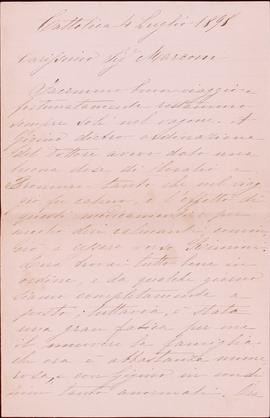 Cattolica 4 Luglio 1898
Carissimo Sigr Marconi
Facemmo buon viaggio e
fortunatamente restammo
sempre soli nel vagone. A
Gigino dietro ordinazione
del dottore avevo dato una
buona dose di cloralio e
bromuro tanto che nel viag
gio fu calmo, e l'effetto di
questi medicamenti e pa
recchi divi calmanti comin
ciò a cessare verso Rimini.
Qua trovai tutto bene in
ordine, e da qualche giorno
siamo completamente a
posto; tuttavia, è stata
una gran fatica per me
il muovere la famiglia
che ora è abbastanza nume
rosa, e con Gigino in condi
zioni tanto anormali. Ora